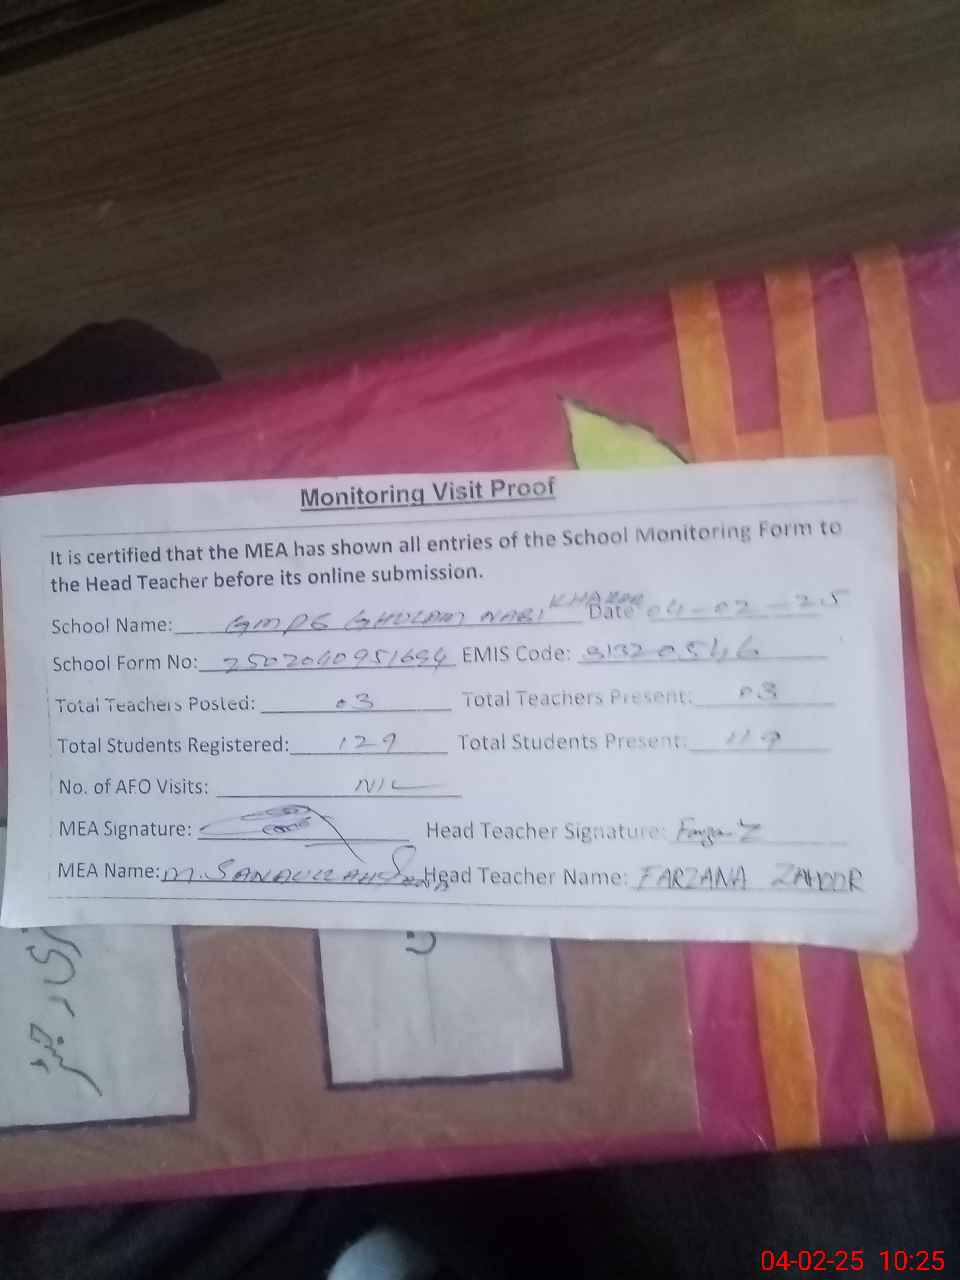 Monitoring Visit Proof
It is certified that the MEA has shown all entries of the School Monitoring Form to
the Head Teacher before its online submission.
School Name: GMPS GHULAM NABI KHARAR Date 04-02-25
School Form No: 2502040951694 EMIS Code: 31320546
Total Teachers Posted: 03 Total Teachers Present: 03
Total Students Registered: 129 Total Students Present: 119
No. of AFO Visits: NIL
MEA Signature: Head Teacher Signature: Farzana Z
MEA Name: M. SANAULLAH Head Teacher Name: FARZANA ZAHOOR
04-02-25 10:25